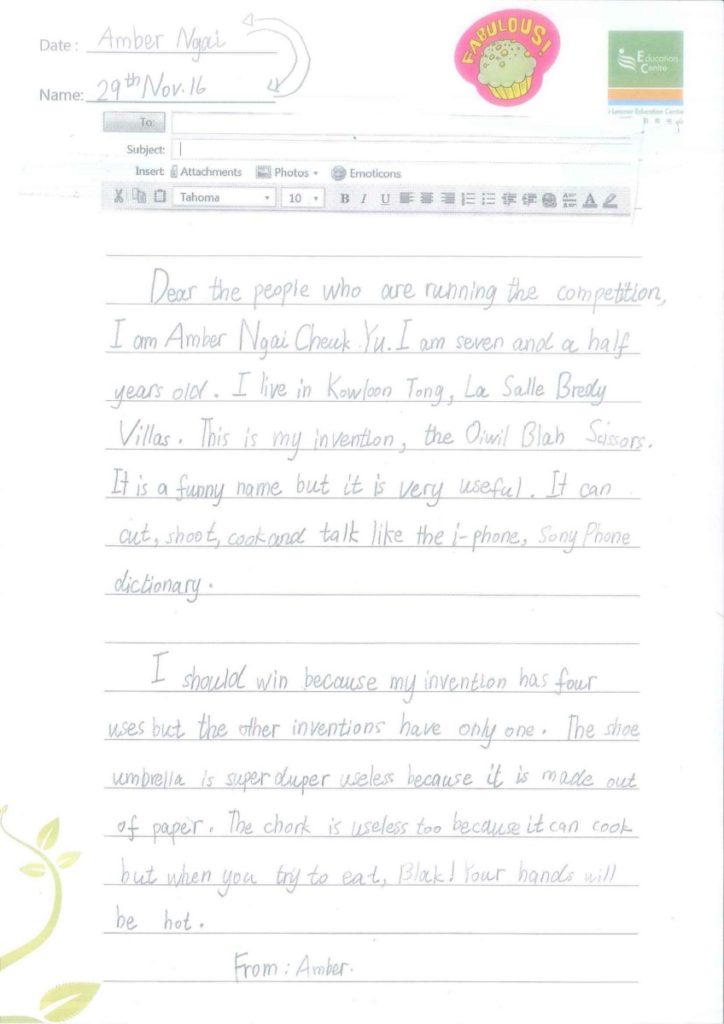 Date: Amber Ngai
FABULOUS!
Education
Centre
Name: 29th Nov. 16
Education Centre
To:
Subject:
Insert: Attachments Photos Emoticons
Tahoma 10 B I U
Dear the people who are running the competition,
I am Amber Ngai Cheuk Yu. I am seven and a half
years old. I live in Kowloon Tong, La Salle Bredy
Villas. This is my invention, the Oiwil Blah Scissors.
It is a funny name but it is very useful. It can
cut, shoot, cook and talk like the i-phone, Sony Phone
dictionary.
I should win because my invention has four
uses but the other inventions have only one. The shoe
umbrella is super duper useless because it is made out
of paper. The chork is useless too because it can cook
but when you try to eat, Blak! Your hands will
be hot.
From: Amber.